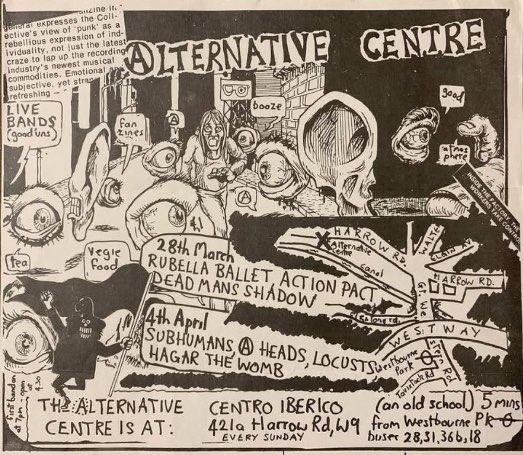 general expresses the Coll-
ective's view of 'punk' as a
rebellious expression of ind-
ividuality, not just the latest
craze to lap up the recording
industry's newest musical
commodities. Emotional
subjective, yet
refreshing —
ALTERNATIVE CENTRE
LIVE
BANDS
(good uns)
fan
zines
booze
good
atmos
phere
tea
vegie
food
28th March
RUBELLA BALLET ACTION PACT
DEAD MANS SHADOW
4th April
SUBHUMANS A HEADS, LOCUSTS
HAGAR THE WOMB
HARROW RD.
Alternative
Centre
canal
HARROW RD.
WESTWAY
Westbourne
Park
Tavistock Rd
first band on
at 7pm - open
at 4.30
THE ALTERNATIVE
CENTRE IS AT:
CENTRO IBERICO
421a Harrow Rd, W9
EVERY SUNDAY
(an old school) 5 mins
from Westbourne Pk
buses 28, 31, 36b, 18